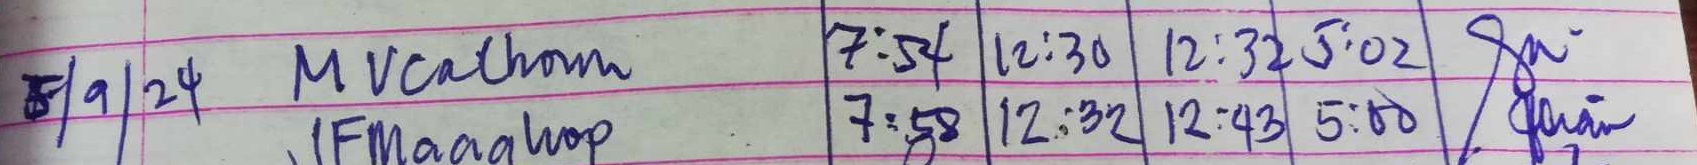 5/9/24 MVCalhoun 7:54 12:30 12:32 5:02
JFMaaghop 7:58 12:32 12:43 5:00